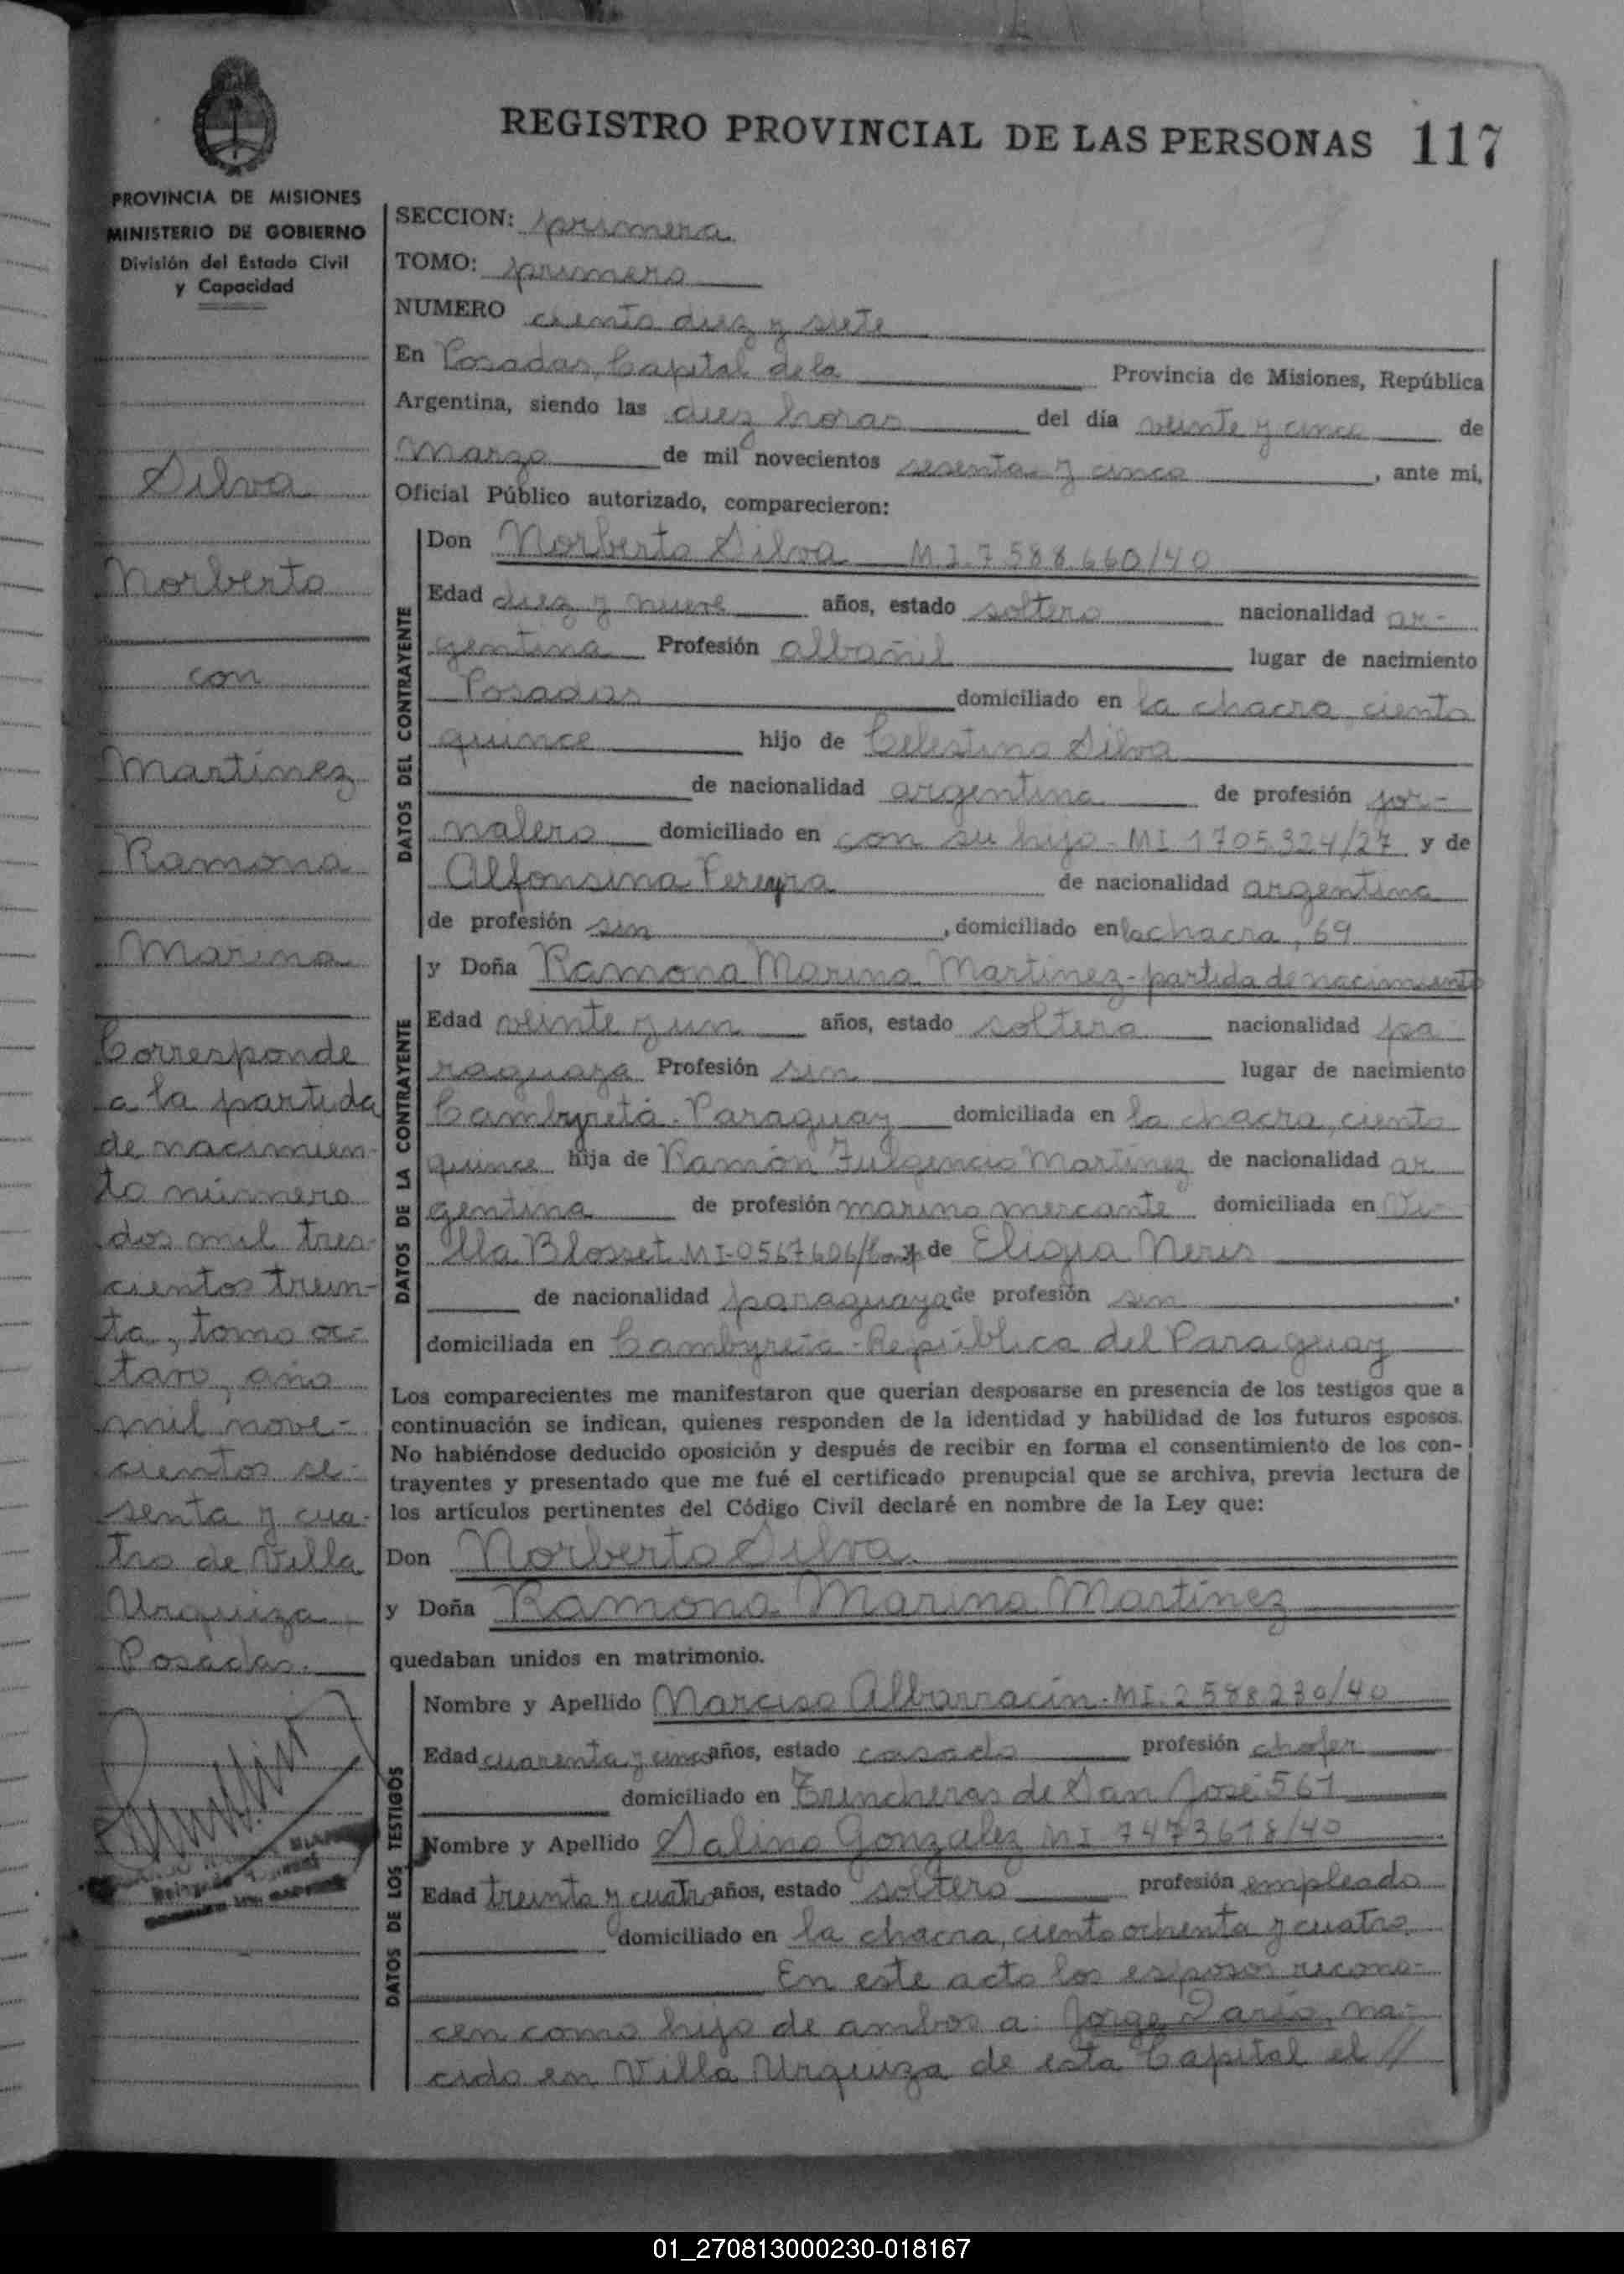 REGISTRO PROVINCIAL DE LAS PERSONAS 117
PROVINCIA DE MISIONES
MINISTERIO DE GOBIERNO
División del Estado Civil
y Capacidad
Silva
Norberto
con
Martínez
Ramona
Marina
Corresponde
a la partida
de nacimien-
to número
dos mil tres-
cientos trein-
ta, tomo oc-
tavo, año
mil nove-
cientos se-
senta y cua-
tro de Villa
Urquiza,
Posadas.
SECCION: primera
TOMO: primero
NUMERO ciento diez y siete
En Posadas, Capital de la Provincia de Misiones, República
Argentina, siendo las diez horas del día veinte y cinco de
marzo de mil novecientos sesenta y cinco, ante mi,
Oficial Público autorizado, comparecieron:
DATOS DEL CONTRAYENTE
Don Norberto Silva M.I. 7588.660/40
Edad diez y nueve años, estado soltero nacionalidad ar-
gentina Profesión albañil lugar de nacimiento
Posadas domiciliado en la chacra, ciento
quince hijo de Celestino Silva
de nacionalidad argentina de profesión jor-
nalero domiciliado en con su hijo - MI 1705324/27 y de
Alfonsina Pereyra de nacionalidad argentina
de profesión sin, domiciliado en la chacra, 69
DATOS DE LA CONTRAYENTE
y Doña Ramona Marina Martínez - partida de nacimiento
Edad veinte y un años, estado soltera nacionalidad pa
raguaya Profesión sin lugar de nacimiento
Cambyretá - Paraguay domiciliada en la chacra, ciento
quince hija de Ramón Fulgencio Martínez de nacionalidad ar
gentina de profesión marino mercante domiciliada en Vi-
lla Blosset MI-0567606/ y de Eligia Neris
de nacionalidad paraguaya de profesión sin,
domiciliada en Cambyretá - República del Paraguay
Los comparecientes me manifestaron que querían desposarse en presencia de los testigos que a
continuación se indican, quienes responden de la identidad y habilidad de los futuros esposos.
No habiéndose deducido oposición y después de recibir en forma el consentimiento de los con-
trayentes y presentado que me fué el certificado prenupcial que se archiva, previa lectura de
los artículos pertinentes del Código Civil declaré en nombre de la Ley que:
Don Norberto Silva
y Doña Ramona Marina Martínez
quedaban unidos en matrimonio.
DATOS DE LOS TESTIGOS
Nombre y Apellido Narciso Albarracín - MI. 2588230/40
Edad cuarenta y cinco años, estado casado profesión chofer
domiciliado en Trincheras de San José 561
Nombre y Apellido Salino Gonzalez MI 7473618/40
Edad treinta y cuatro años, estado soltero profesión empleado
domiciliado en la chacra, ciento ochenta y cuatro.
En este acto los esposos recono-
cen como hijo de ambos a: Jorge Darío, na-
cido en Villa Urquiza de esta Capital el //
01_270813000230-018167